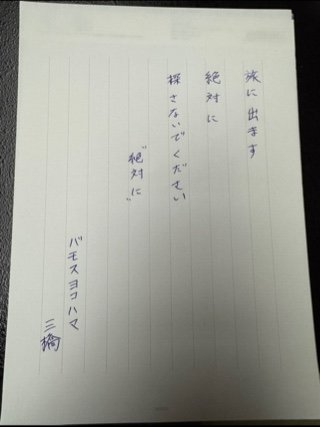 旅に出ます
絶対に
探さないでください
"絶対に"
バモスヨコハマ
三橋